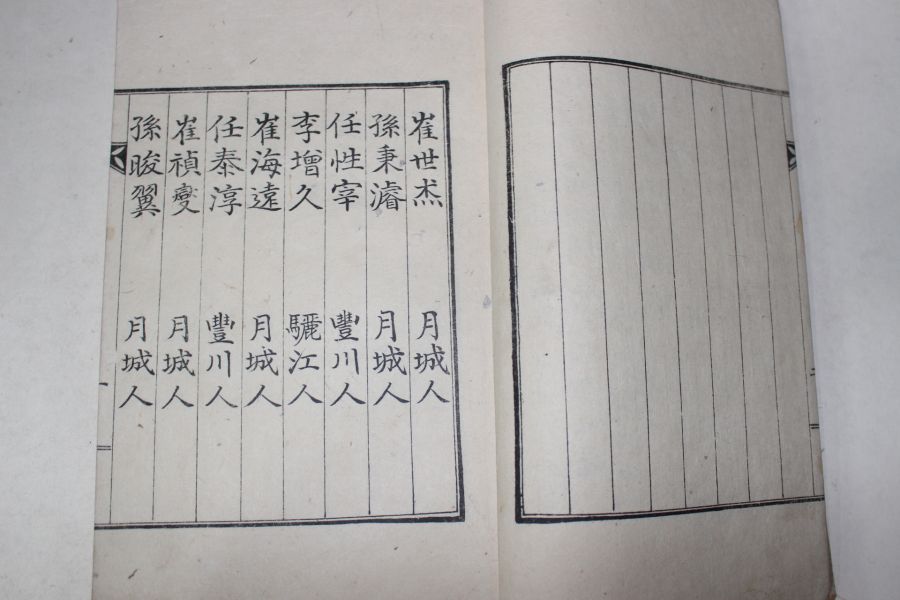 崔世烋 月城人
孫秉濬 月城人
任性宰 豐川人
李增久 驪江人
崔海遠 月城人
任泰淳 豐川人
崔禎燮 月城人
孫晙翼 月城人